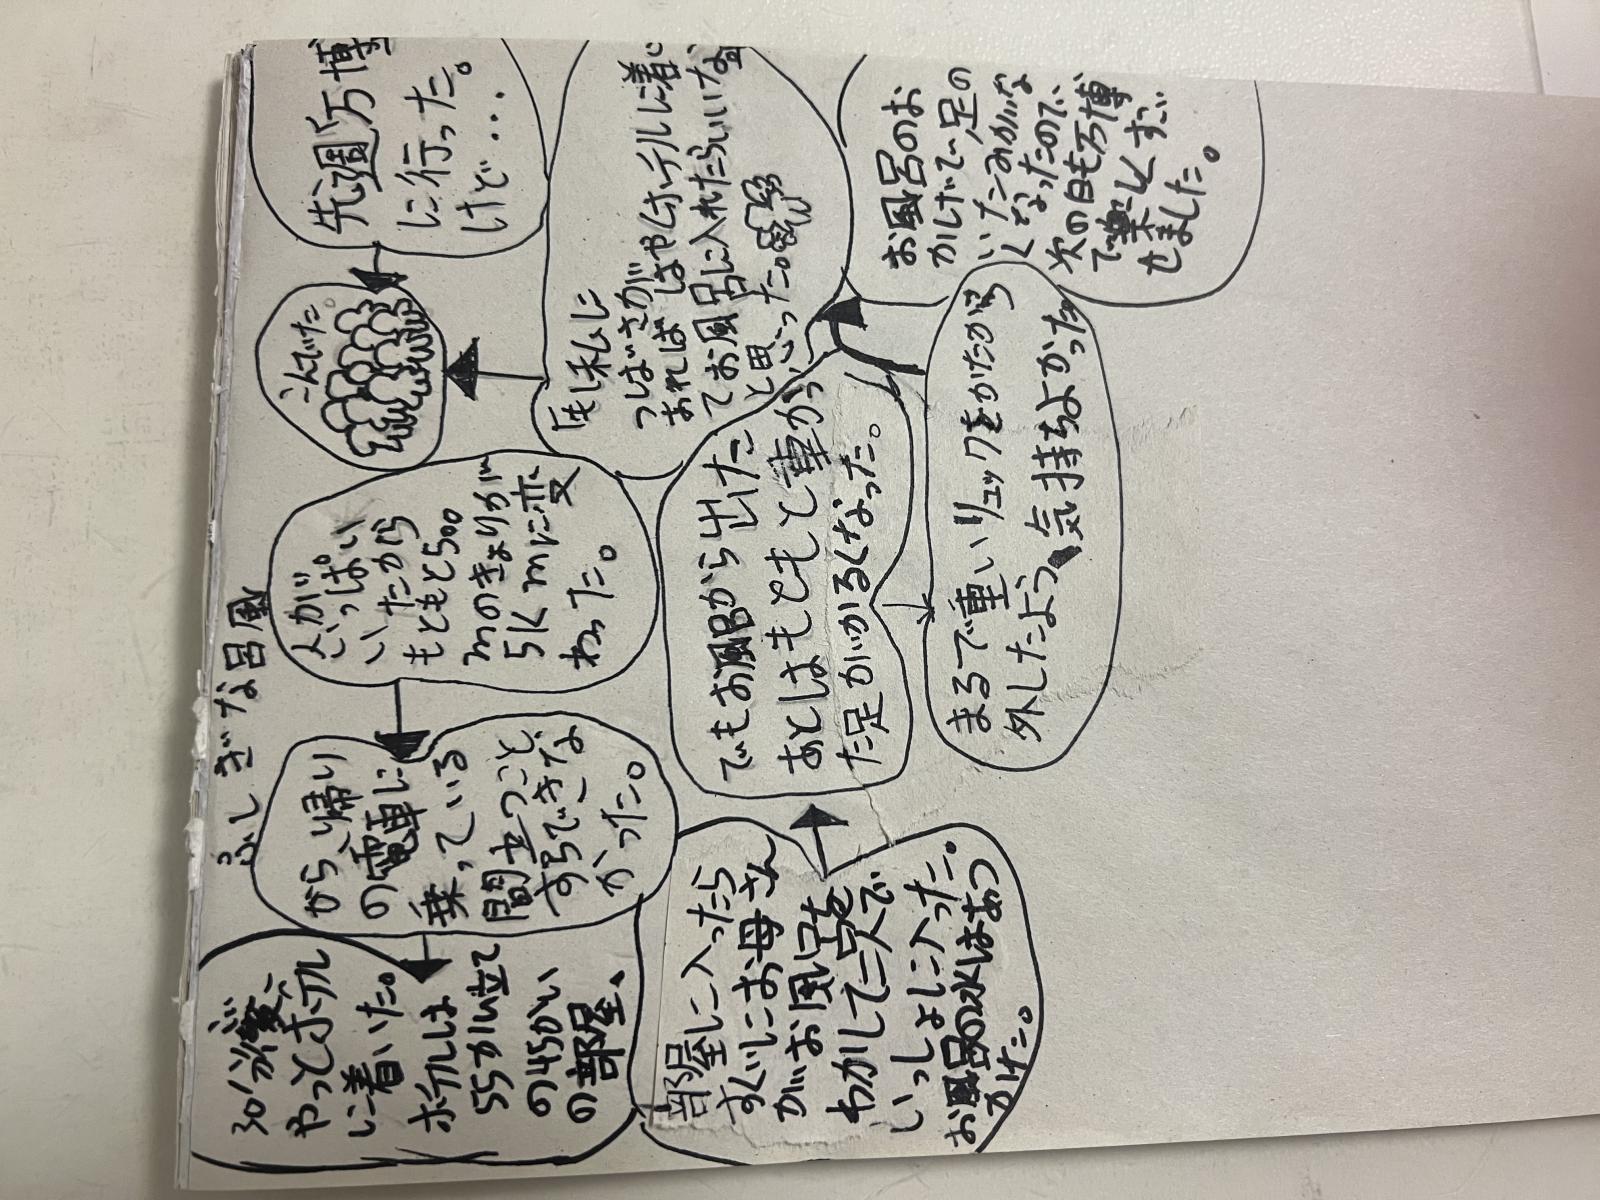 ふしぎな呂風
先週万博
に行った。
けど・・・
こんでいた。
人が
いっぱい
いたから
もともと500
mのきょりが
5kmに変
わった。
がら、帰り
の電車に
乗っている
間立つこと、
すらできな
かった。
やっとホテル
に着いた。
ホテルは
55かい立て
の45かい
の部屋、
部屋に入ったら
すぐにお母さん
がお風呂を
わかして二人で
いっしょに入った。
お風呂の水はあつ
でもお風呂から出た
あとはもともと重かっ
た足がかるくなった。
まるで重いリュックを
外したよう、気持ちよかった
もし私に
つばさが
あればはやくホテルに着い
てお風呂に入れたらいいな
と思いった。
お風呂のお
かげで足の
いたみがな
くなったので
次の日も万博
で楽しくすご
せました。